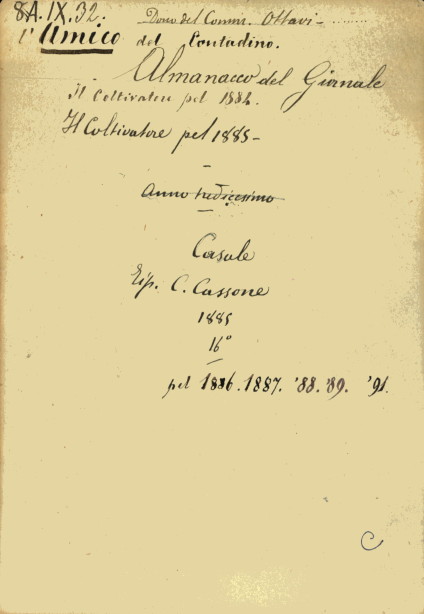 8A.IX.32. Dono del Comm. Ottavi -
l'Amico del Contadino.
Almanacco del Giornale
il Coltivatore pel 1884.
Il Coltivatore pel 1885 -
Anno tredicesimo
Casale
Tip. C. Cassone
1885
16°
pel 1886. 1887. '88. '89. '91.
C